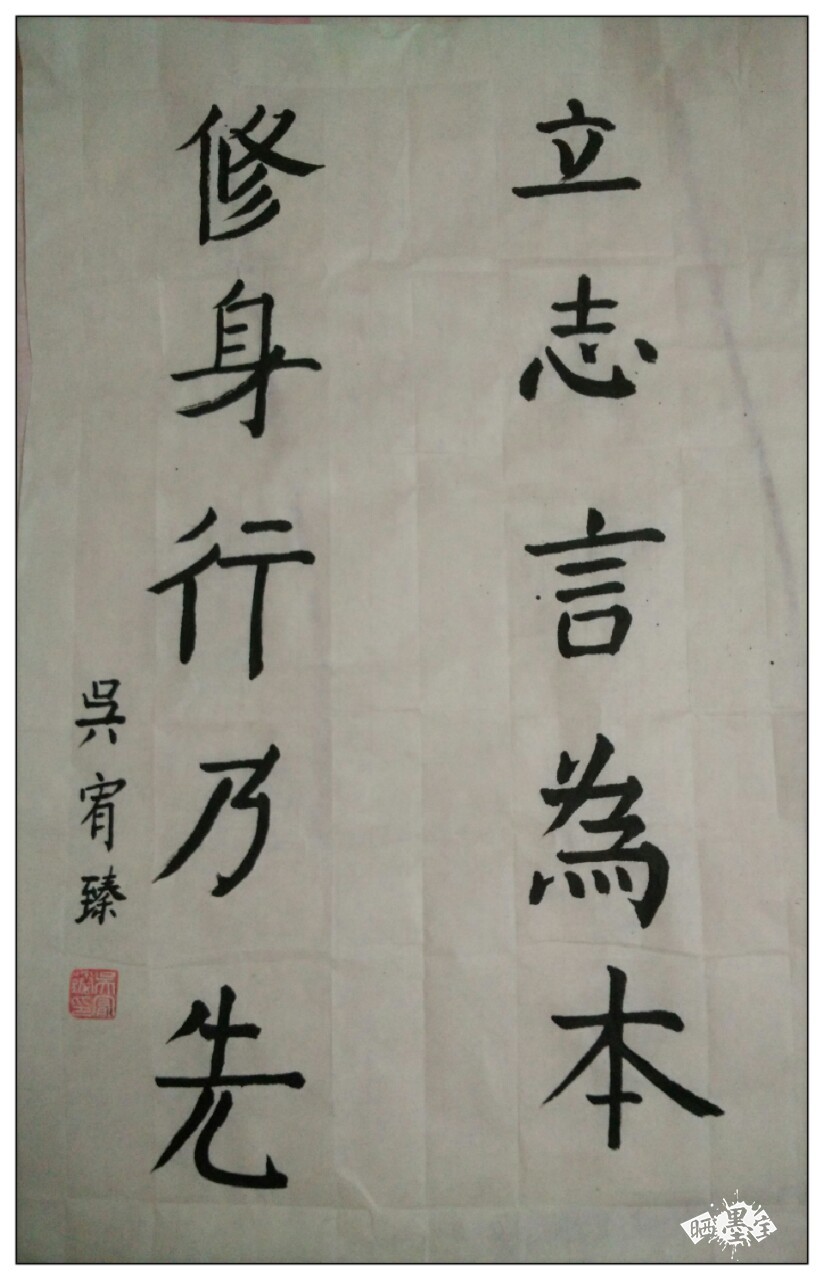 立志言為本
修身行乃先
吳宥臻
晒墨宝